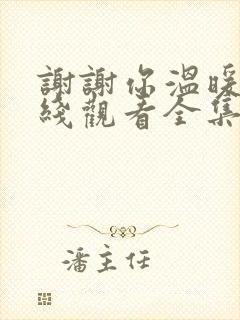 謝謝你溫暖
綫觀看全集
潘主任